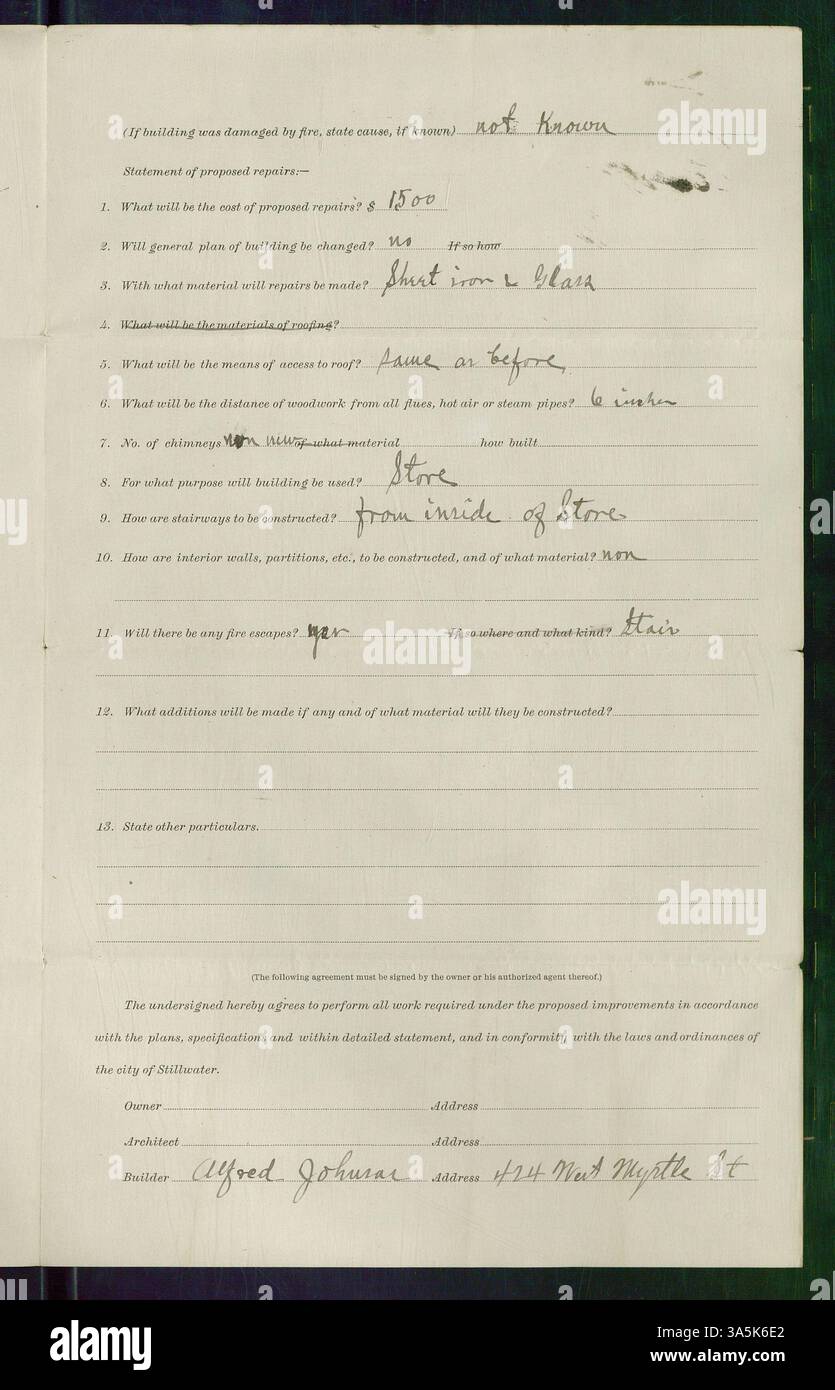 (If building was damaged by fire, state cause, if known) not Known
Statement of proposed repairs:—
1. What will be the cost of proposed repairs? $ 1500
2. Will general plan of building be changed? no If so how
3. With what material will repairs be made? Sheet iron & Glass
4. What will be the materials of roofing?
5. What will be the means of access to roof? same as before
6. What will be the distance of woodwork from all flues, hot air or steam pipes? 6 inches
7. No. of chimneys non new of what material how built
8. For what purpose will building be used? Store
9. How are stairways to be constructed? from inside of Store
10. How are interior walls, partitions, etc., to be constructed, and of what material? non
11. Will there be any fire escapes? yes If so where and what kind? Stair
12. What additions will be made if any and of what material will they be constructed?
13. State other particulars.
(The following agreement must be signed by the owner or his authorized agent thereof.)
The undersigned hereby agrees to perform all work required under the proposed improvements in accordance
with the plans, specifications and within detailed statement, and in conformity with the laws and ordinances of
the city of Stillwater.
Owner Address
Architect Address
Builder Alfred Johnson Address 424 West Myrtle St
alamy
Image ID: 3A5K6E2
www.alamy.com